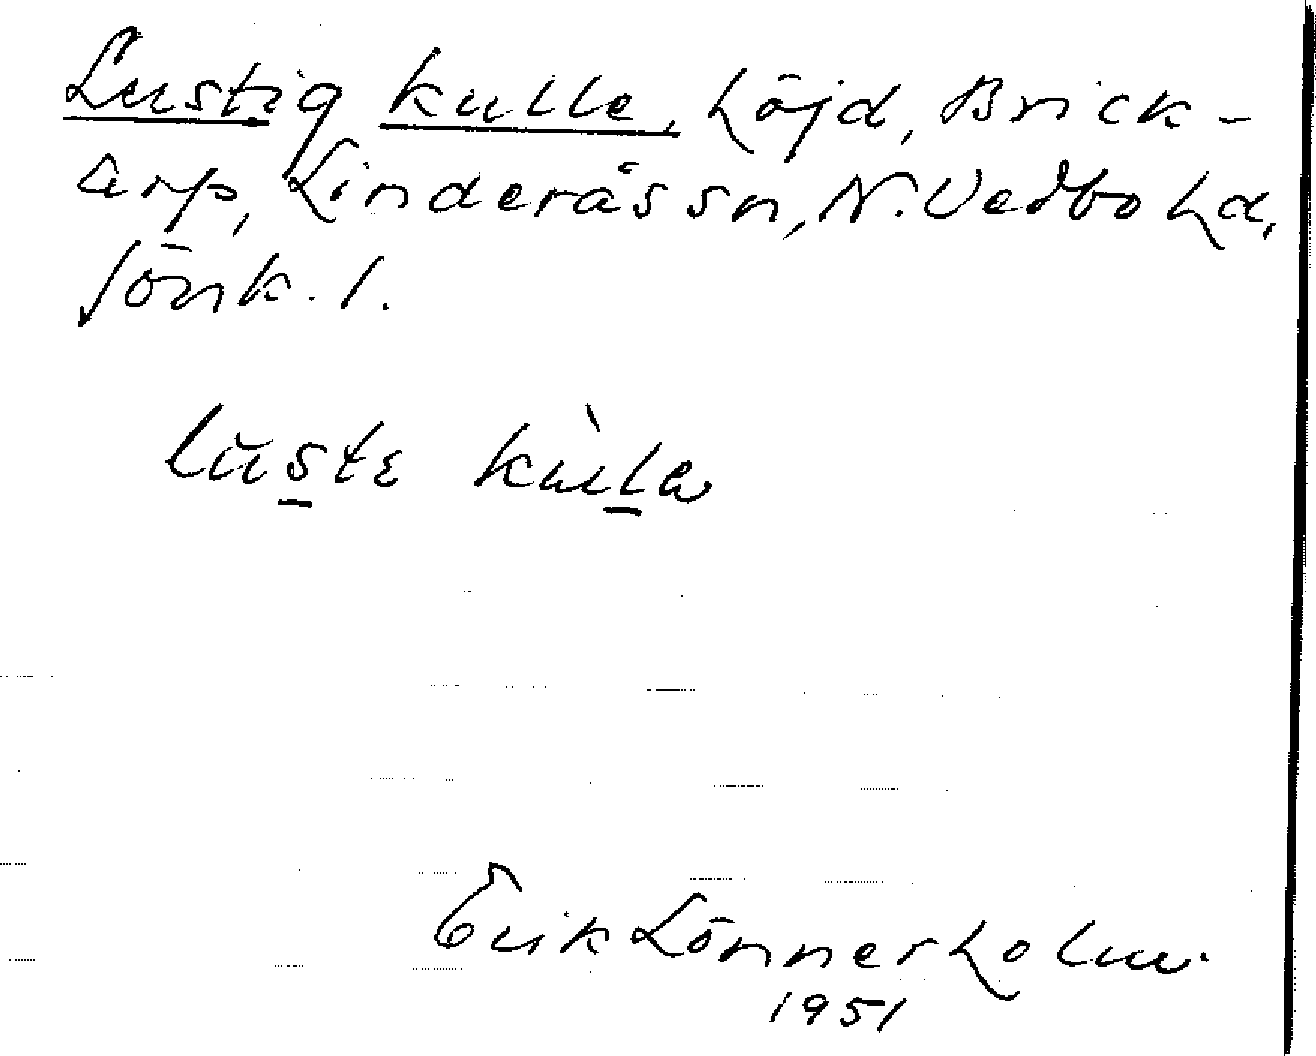 Lustig kulle, höjd, Brick-
arp, Linderås sn, N. Vedbo hd,
Jönk. l.
lŭstɛ kùla
Erik Lönnerholm.
1951